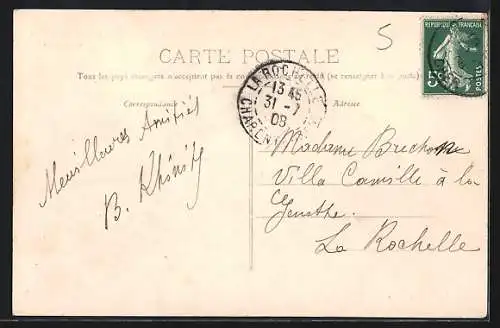 5
CARTE POSTALE
Tous les pays étrangers n'acceptent pas la (se renseigner à la poste)
Correspondance
Adresse
RÉPUBLIQUE FRANÇAISE
5c
POSTES
LA ROCHELLE
13 45
31 - 7
08
Meilleures Amitiés
B.
Madame
Villa Camille à la
La Rochelle